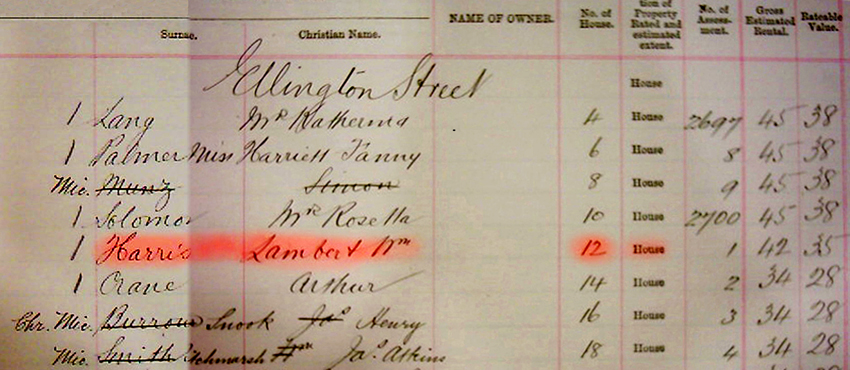 Surname. Christian Name. NAME OF OWNER. No. of House. tion of Property Rated and estimated extent. No. of Assess- ment. Gross Estimated Rental. Rateable Value.
Ellington Street House
1 Lang Mrs Katherina 4 House 2697 45 38
1 Palmer Miss Harriett Fanny 6 House 8 45 38
Mic. Munz Simon 8 House 9 45 38
1 Solomon Mrs Rosetta 10 House 2700 45 38
1 Harris Lambert Wm 12 House 1 42 35
1 Crane Arthur 14 House 2 34 28
Chr. Mic. Burrow Snook Jas Henry 16 House 3 34 28
Mic. Smith Jas. Atkins 18 House 4 34 28